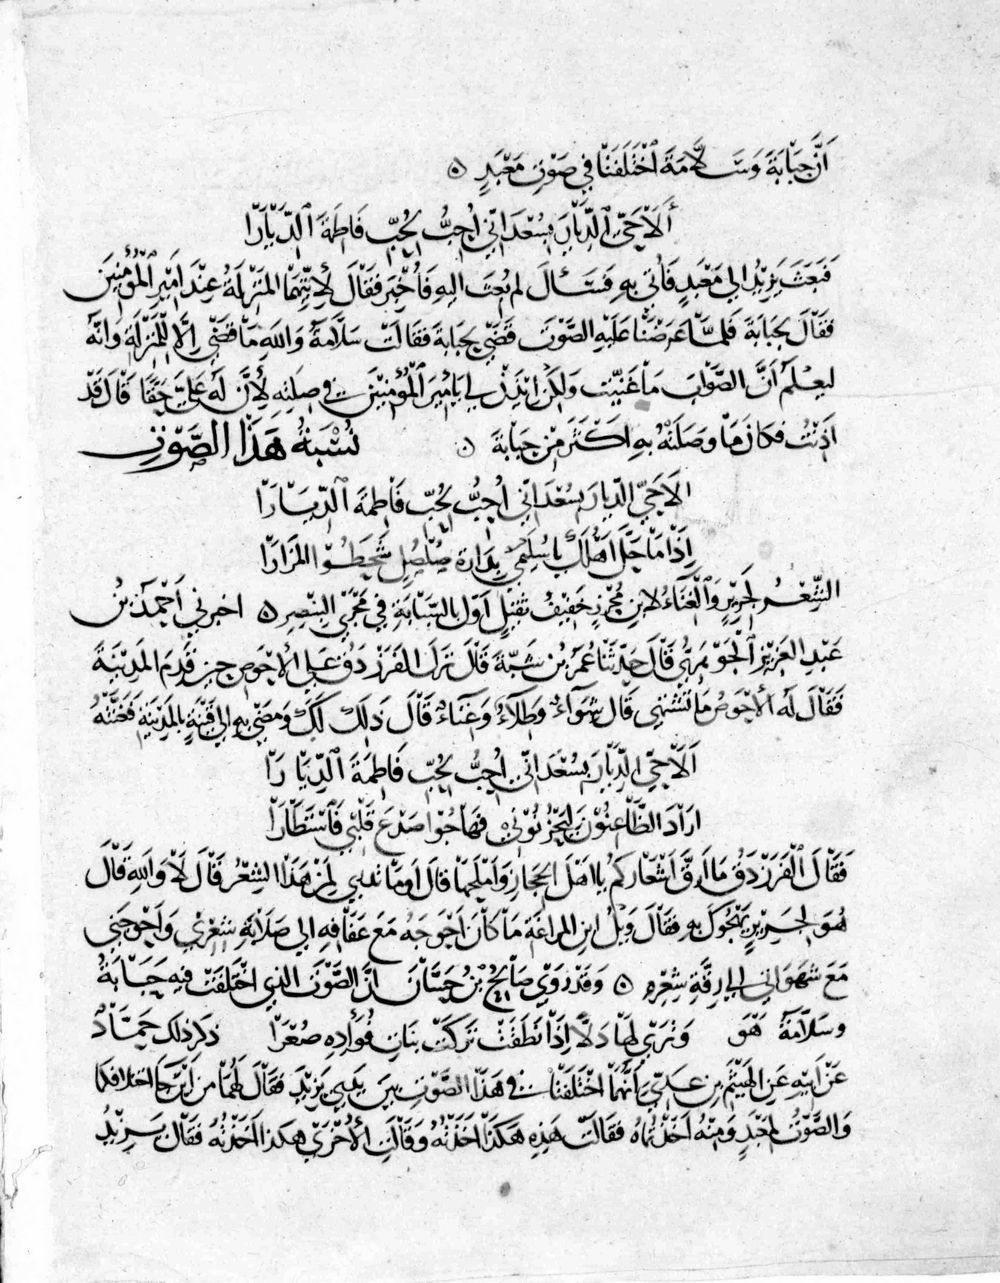 أَنَّ حَبَابَةَ وَسَلَّامَةَ اخْتَلَفَتَا فِي صَوْتِ مَعْبَدٍ ه
أَلَا حَيِّ الدِّيَارَ بِسُعْدَ اِنِّي أُحِبُّ لِحُبِّ فَاطِمَةَ الدِّيَارَا
فَبَعَثَ يَزِيْدُ الي مَعْبَدٍ فَأُتِيَ بِهِ فَسَأَلَ لِمَ بُعِثَ اليهِ فَأُخْبِرَ فَقَالَ لأَيَّتِهِمَا المَنْزِلَةُ عِنْدَ اَمِيْرِ الْمُؤْمِنِيْنَ
فَقَالَ لِحَبَابَةَ فَلَمَّا عَرَضَتَا عَلَيْهِ الصَّوْتَ قَضَي لِحَبَابَةَ فَقَالَتْ سَلَّامَةُ وَاللهِ مَا قَضَي اِلَّا لِلْمَنْزِلَةِ وَانَّهُ
لَيعْلَمُ أَنَّ الصَّوَابَ مَا غَنَّيْتُ وَلَكِنْ ائْذَنْ لِي يَا اَمِيْرَ الْمُؤْمِنِيْنَ فِي صِلَتِهِ لِأَنَّ لَهُ عَلَيَّ حَقًّا قَالَ قَدْ
اَذِنْتُ فكَانَ مَا وَصَلَتْهُ بِهِ اَكْثَرَ مِنْ حَبَابَةَ ه نِسْبَةُ هَذَا الصَّوْتِ
الَا حَيِّ الدِّيارَ بِسُعْدَ اِنِّي أُحِبُّ لِحُبِّ فَاطِمَةَ الدِّيَارَا
اِذَا مَا حَلَّ اَهْلُكِ يَا سُلَيْمَي بِدَارَةِ صُلْصُلٍ شَحَطُوا المَزَارَا
الشِّعْرُ لِجَرِيْرٍ وَالْغِنَاءُ لِابنِ مُحْرِزٍ خَفِيْفُ ثَقِيْلٍ اَوَّل بِالسَّبَّابَةِ فِي مَجْرَي البِنْصِرِ ه اخبرني أَحْمَدُ بْنُ
عَبْدِ العَزِيْزِ الْجَوْهَرِيُّ قَالَ حَدَّثَنَا عُمَرُ بْنُ شَبَّةَ قَالَ نَزَلَ الفَرَزْدَقُ عَلَي الْأَحْوَصِ حِيْنَ قَدِمَ المَدِيْنَةَ
فَقَالَ لَهُ الْأَحْوَصُ مَا تَشْتَهِي قَالَ شِوَآءً وَطِلَآءً وَغِنَاءً قَالَ ذَلِكَ لَكَ وَمَضَي بِهِ اِلَي قَيْنَةٍ بِالمَدِيْنَةِ فَغَنَّتْهُ
اَلَا حَيِّ الدِّيَارَ بِسُعْدَ اِنِّي أُحِبُّ لِحُبِّ فَاطِمَةَ الدِّيَارَا
اَرَادَ الظَّاعِنُوْنَ لِيَحْزُنُوْنِي فَهَاجُوْا صَدْعَ قَلْبِي فَاسْتَطَارَا
فَقَالَ الْفَرَزْدَقُ مَا اَرَقَّ اَشْعَارَكُمْ يا اَهْلَ الحِجَازِ وَاَمْلَحَهَا قَالَ اَومَا تدري لِمَنْ هَذَا الشِّعْرُ قَالَ لَا وَاللهِ قَالَ
هُوَ لِجَرِيْرٍ يَهْجُوْكَ بِهِ فَقَالَ وَيْلُ ابْنِ المَرَاغَةِ مَا كَانَ اَحْوَجَهُ مَعَ عَفَافِهِ اِلَي صَلَابَةِ شِعْرِي وَاَحْوَجَنِي
مَعَ شَهَوَاتِي اِلَي رِقَّةِ شِعْرِهِ ه وَقَدْ رَوَي صَالِحُ بْنُ حَسَّانَ اَنَّ الصَّوْتَ الذِي اخْتَلَفَتْ فِيهِ حَبَابَةُ
وسَلَّامَةُ هُوَ وَتُرَي لَهَا دَلًّا اِذَا نَطَقَتْ تَرَكَتْ بَنَاتِ فُؤَادِهِ صُعْرَا ذَكَرَ ذلك حَمَّادٌ
عَنْ اَبِيْهِ عَنِ الهَيْثَمِ بنِ عَدِيٍّ أَنَّهُمَا اخْتَلَفَتَا فِي هَذَا الصَّوْتِ بَيْنَ يَدَيْ يَزِيْدَ فَقَالَ لَهُمَا مِنْ اَيْنَ جَا اختلافكما
وَالصَّوْتُ لِمَعْبَدٍ وَمِنْهُ اَخَذْتُمَاهُ فَقَالَتْ هَذِهِ هَكَذَا اَخَذْتُهُ وَقَالَتِ الْأُخْرَي هكذا اَخَذْتُهُ فَقَالَ يَزِيْدُ